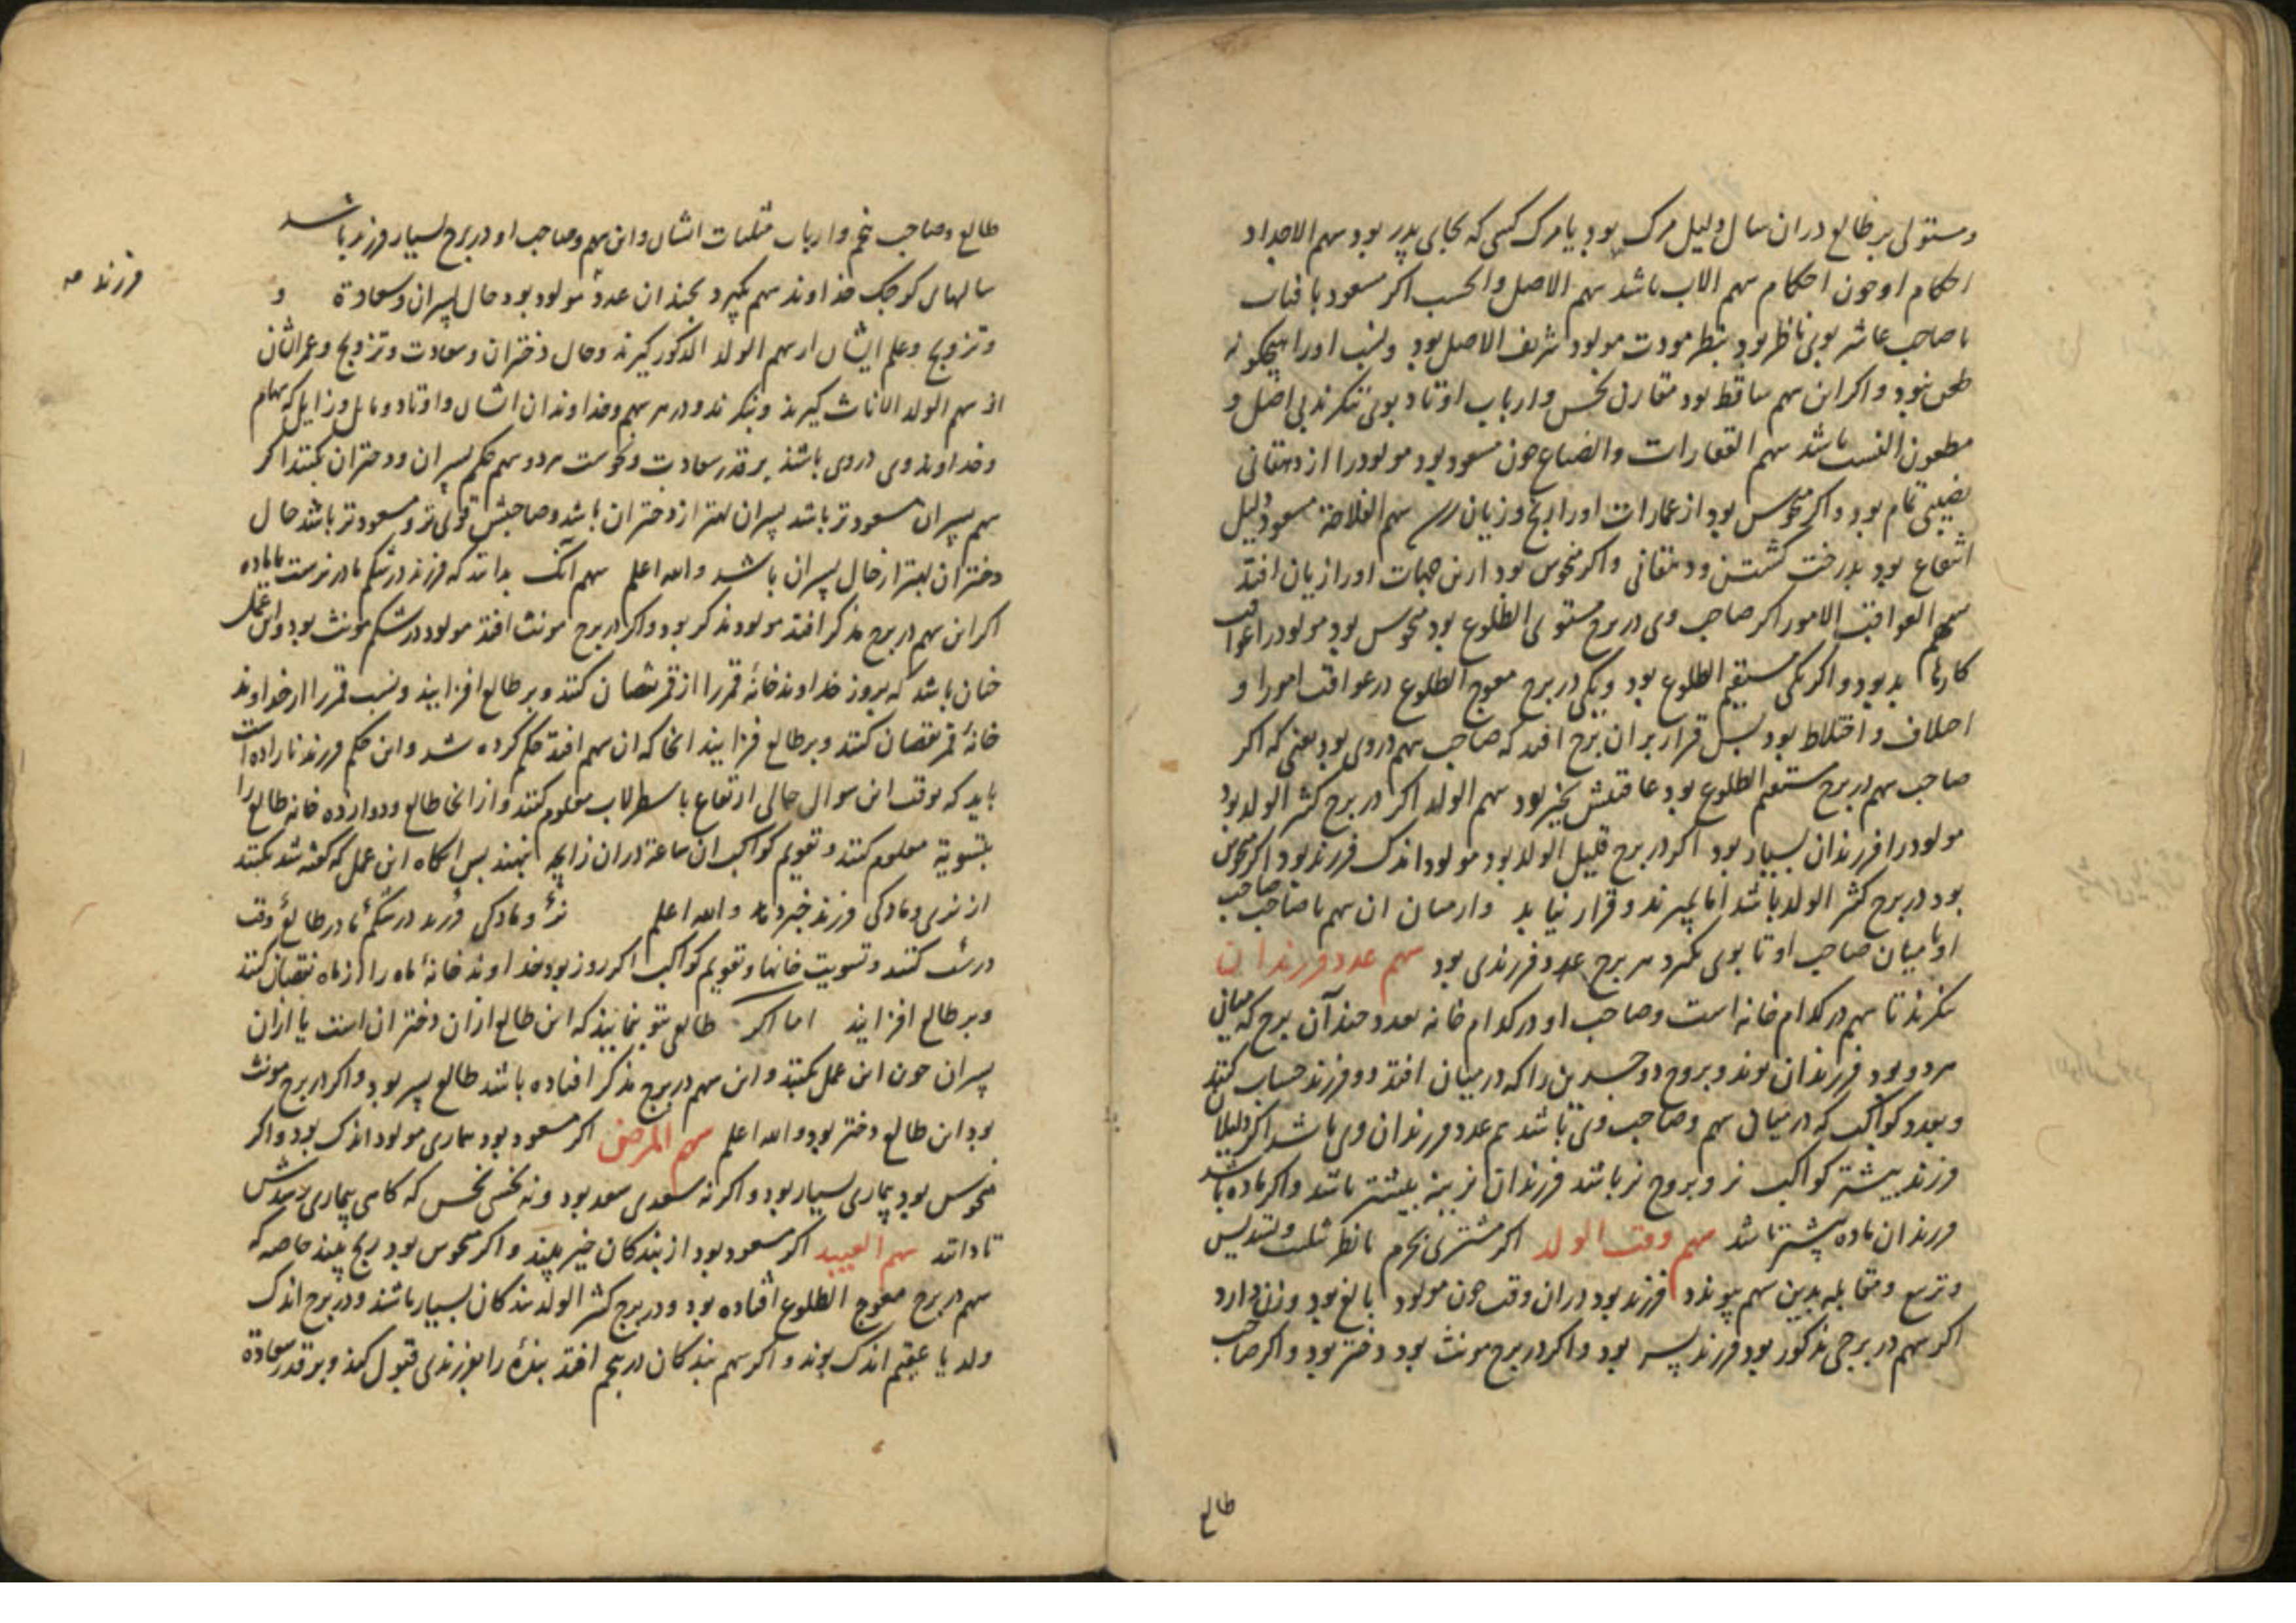 ومستولی بر طالع دران سال دلیل مرک بود یا مرک کسی که بجای پدر بود سهم الاجداد
احکام او چون احکام سهم الاب باشد سهم الاصل والحسب اکر مسعود با فتاب
با صاحب عاشر بوی ناظر بود بنظر مودت مولود شریف الاصل بود ونسب اورا هیچکونه
طعن نبود واکر این سهم ساقط بود مقارن نحس وارباب اوتاد بوی ننکرند بی اصل و
مطعون النسب باشد سهم العقارات والضیاع چون مسعود بود مولودرا از دهقانی
نصیبی تمام بود واکر منحوس بود از عمارات اورا رنج وزیان رسد سهم الفلاحة مسعود دلیل
انتفاع بود بدرخت کشتن ودهقانی واکر منحوس بود ازین جهات اورا زیان افتد
سهم العواقب الامور اکر صاحب وی در برج مستوی الطلوع بود منحوس بود مولودرا عواقب
کارها بد بود واکر یکی مستقیم الطلوع بود ویکی در برج معوج الطلوع در عواقب امور او
اختلاف و اختلاط بود پس قرار بران برج افتد که صاحب سهم دروی بود یعنی که اکر
صاحب سهم در برج مستقیم الطلوع بود عاقبتش بخیر بود سهم الولد اکر در برج کثیر الولد بود
مولودرا فرزندان بسیار بود اکر در برج قلیل الولد بود مولود اندک فرزند بود اکر منحوس
بود در برج کثیر الولد باشد اما بمیرند وقرار نیابد وازمیان ان سهم تا صاحب صاحب
او تا میان صاحب او تا بوی بکیرد هر برج عدد فرزندی بود سهم عدد فرزندان
بنکرند تا سهم در کدام خانه است وصاحب او در کدام خانه بعدد چند آن برج که میانی
هر دو بود فرزندان بوند وبروج دوجسدین را که در میان افتد دو فرزند حساب کنند
وبعدد کواکب که در میان سهم وصاحب وی باشد هم عدد فرزندان وی باشد اکر دلیلان
فرزند بیشتر کواکب نر وبروج نر باشد فرزندان نرینه بیشتر باشد واکر ماده باشد
فرزندان ماده بیشتر باشد سهم وقت الولد اکر مشتری بجرم یا نظر تثلیث وتسدیس
وتربیع ومقابله بدین سهم پیوندد فرزند بود دران وقت چون مولود بالغ بود وزن دارد
اکر سهم در برجی مذکور بود فرزند پسر بود واکر در برج مونث بود دختر بود واکر صاحب
طالع
طالع وصاحب پنجم وارباب مثلثات ایشان واین سهم وصاحب او در برج بسیار فرزند باشد
سالهای کوچک خداوند سهم بکیرد بچندان عدد مولود بود حال پسران وسعادة و
وتزویج وعلم ایشان از سهم الولد الذکور کیرند وحال دختران وسعادت وتزویج وعمر ایشان
از سهم الولد الاناث کیرند وبنکرند ودر هر سهم وخداوندان ایشان واوتاد ومایل وزایل که سهام
وخداوند وی دروی باشد بر قدر سعادت ونحوست هر دو سهم حکم پسران ودختران بکنند اکر
سهم پسران مسعودتر باشد پسران بهتر از دختران باشد وصاحبش قوی تر ومسعودتر باشد حال
دختران بهتر از حال پسران باشد والله اعلم سهم آنک بداند که فرزند در شکم مادر نرست یا ماده
اکر این سهم در برج مذکر افتد مولود مذکر بود واکر در برج مونث افتد مولود در شکم مونث بود واین عمل
چنان باشد که بروز خداوند خانهٔ قمر را از قمر نقصان کنند وبر طالع افزایند وبشب قمر را از خداوند
خانهٔ قمر نقصان کنند وبر طالع فزایند انجا که ان سهم افتد حکم کرده شد واین حکم فرزند نازاده است
باید که بوقت این سوال حالی ارتفاع باسطرلاب معلوم کنند واز انجا طالع ودوازده خانه طالع را
بتسویة معلوم کنند وتقویم کواکب ان ساعة دران زایچه بنهند پس آنکاه این عمل که کفته شد بکنند
از نری ومادکی فرزند خبر دهد والله اعلم نرئ ومادکی فرزند در شکم مادر طالع وقت
درست کنند وتسویت خانها وتقویم کواکب اکر روز بود خداوند خانهٔ ماه را از ماه نقصان کنند
وبر طالع افزایند اما اکر طالعی بتو نمایند که این طالع ازان دختران است یا ازان
پسران چون این عمل بکنند واین سهم در برج مذکر افتاده باشد طالع پسر بود واکر در برج مونث
بود این طالع دختر بود والله اعلم سهم المرض اکر مسعود بود بیماری مولود اندک بود واکر
منحوس بود بیماری بسیار بود واکر نه سعدی سعد بود ونه نحسی نحس که کاهی بیماری رسدش
تا داند سهم العبید اکر مسعود بود از بندکان خیر بیند واکر منحوس بود رنج بیند خاصه که
سهم در برج معوج الطلوع افتاده بود ودر برج کثیر الولد بندکان بسیار باشند ودر برج اندک
ولد یا عقیم اندک بوند واکر سهم بندکان در پنجم افتد بندهٔ را بفرزندی قبول کند وبر قدر سعادة
فرزند صه